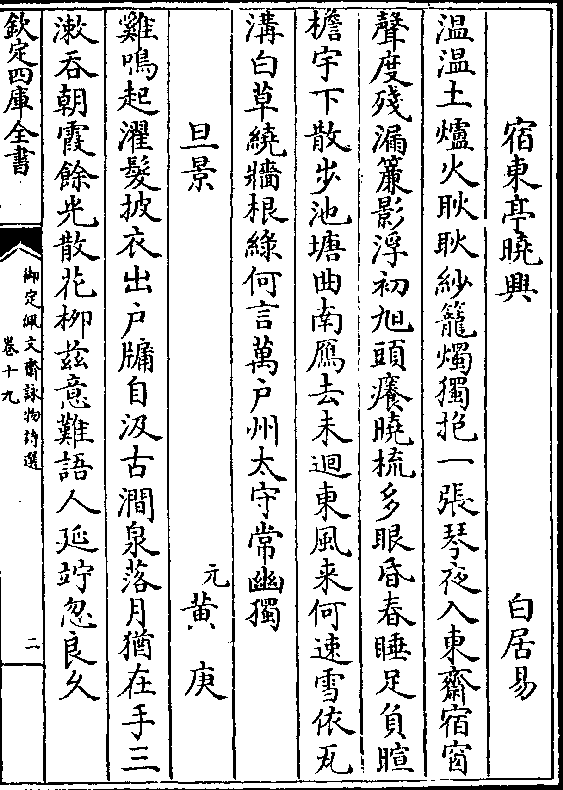 宿東亭曉興　白居易
温温土爐火耿耿紗籠燭獨抱一張琴夜入東齋宿窗
聲度殘漏簾影浮初旭頭癢曉梳多眼昏春睡足負暄
檐宇下散步池塘曲南鴈去未迴東風来何速雪依瓦
溝白草繞牆根緑何言萬户州太守常幽獨
旦景　元黄庚
雞鳴起濯髮披衣出户牗自汲古澗泉落月猶在手三
漱吞朝霞餘光散花柳兹意難語人延竚忽良久
欽定四庫全書
御定佩文齋詠物詩選
卷十九
二